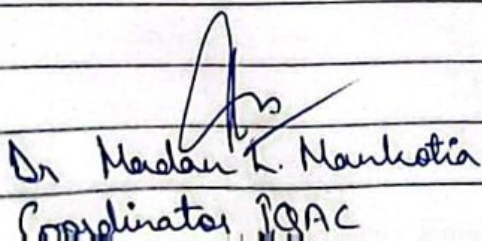 Dr Madan K. Mankotia
Coordinator, IQAC